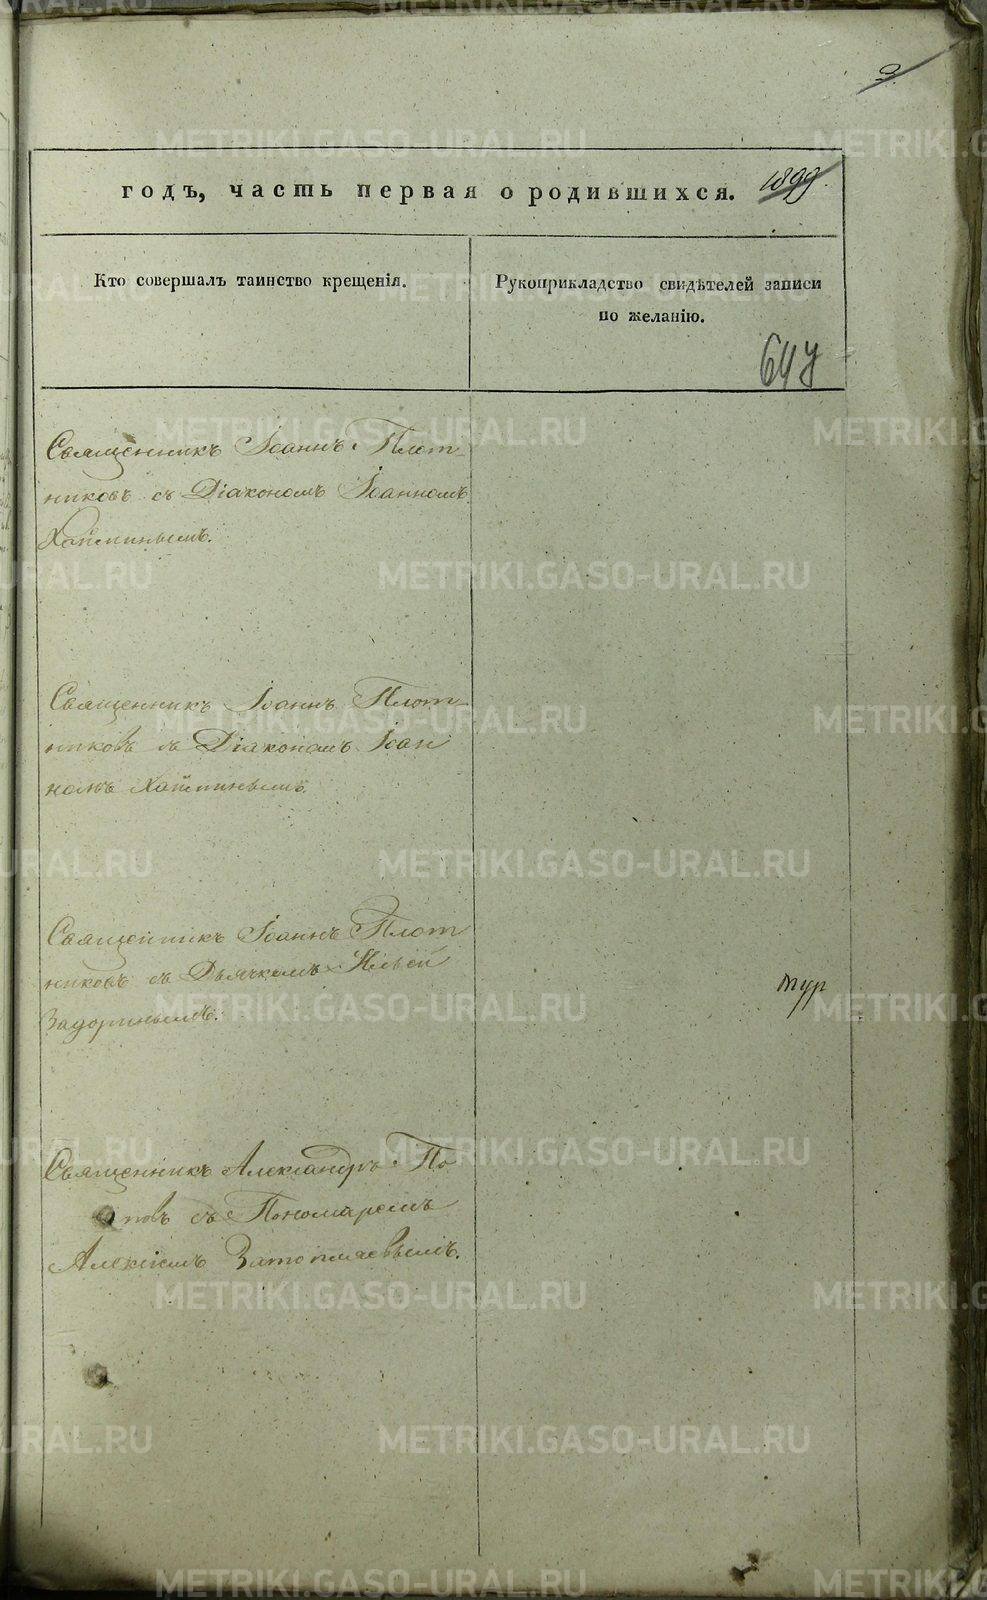 9
годъ, часть первая о родившихся. 1899.
Кто совершалъ таинство крещенія.
Рукоприкладство свидѣтелей записи
по желанію.
Священникъ Іоаннъ Плот
никовъ съ Діакономъ Іоанномъ
Хайминымъ.
Священникъ Іоаннъ Плот
никовъ съ Діакономъ Іоан
номъ Хайминымъ.
Священникъ Іоаннъ Плот
никовъ съ Дьячкомъ Ильей
Задоринымъ.
Священникъ Александръ По
повъ съ Пономаремъ
Алексіемъ
METRIKI.GASO-URAL.RU